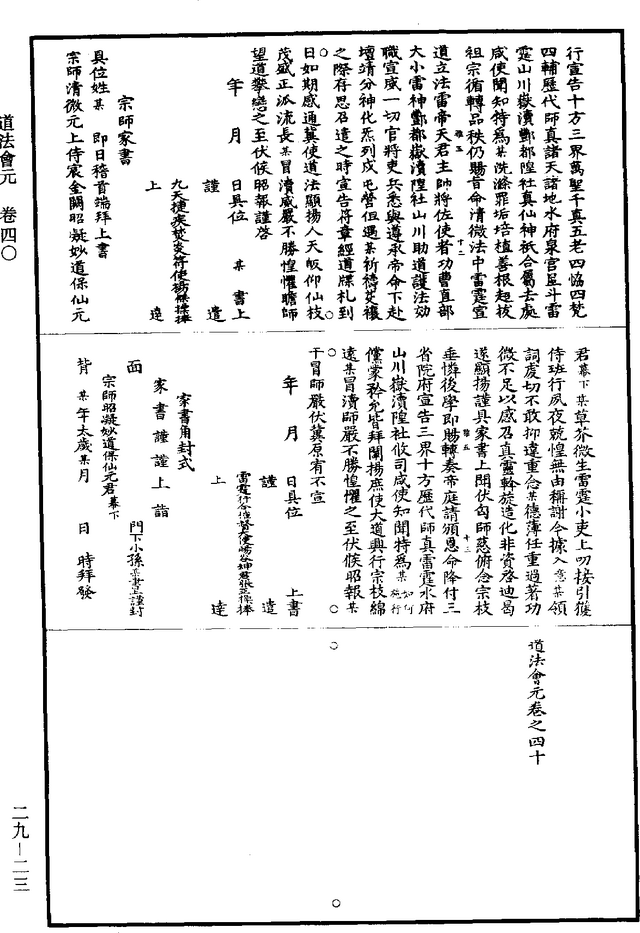 道法會元　卷四〇
行宣告十方三界萬聖千真五老四恊四梵
四輔歷代師真諸天諸地水府泉宮星斗雷
霆山川嶽瀆酆都隍社真仙神祇合屬去處
咸使聞知特為某洗滌罪垢培植善根超拔
祖宗循轉品秩仍賜旨命清微法中雷霆宣
道立法雷帝天君主帥將佐使者功曹直部
大小雷神酆都嶽瀆隍社山川助道護法効
職宣威一切官將吏兵悉與遵承帝命下赴
壇靖分神化炁列戍屯營但遇某祈禱災禳
之際存思召遣之時宣告符章經道牒札到
日如期感通冀使道法顯揚人天皈仰仙枝
茂盛正派流長某冒瀆威嚴不勝惶懼瞻師
望道攀戀之至伏候昭報謹啓
年　月　日具位　某　書上
謹　遣
上　達
宗師家書
具位姓某　即日稽首端拜上書
宗師清微元上侍宸金闕昭凝妙道保仙元
君幕下某草芥微生雷霆小吏上叨接引僱
侍班行夙夜兢惶無由稱謝今據入意某領
詞虔切不敢抑違重念某德薄任重過著功
微不足以感召真靈斡旋造化非資啓迪曷
遂顯揚謹具家書上聞伏匃師慈俯念宗枝
垂憐後學即賜轉奏帝庭請頒恩命降付三
省院府宣告三界十方歷代師真雷霆水府
山川嶽瀆隍社攸司咸使知聞特為某如何施行
儻蒙矜允皆拜闡揚庶使大道興行宗枝綿
遠某冒瀆師嚴不勝惶懼之至伏候昭報某
干冒師嚴伏冀原宥不宣
年　月　日具位　上書
謹　遣
上　達
家書角封式
家書謹謹上詣
面　宗師昭凝妙道保仙元君幕下
背　某年太歲某月　日　時拜發
道法會元卷之四十
二九－二三